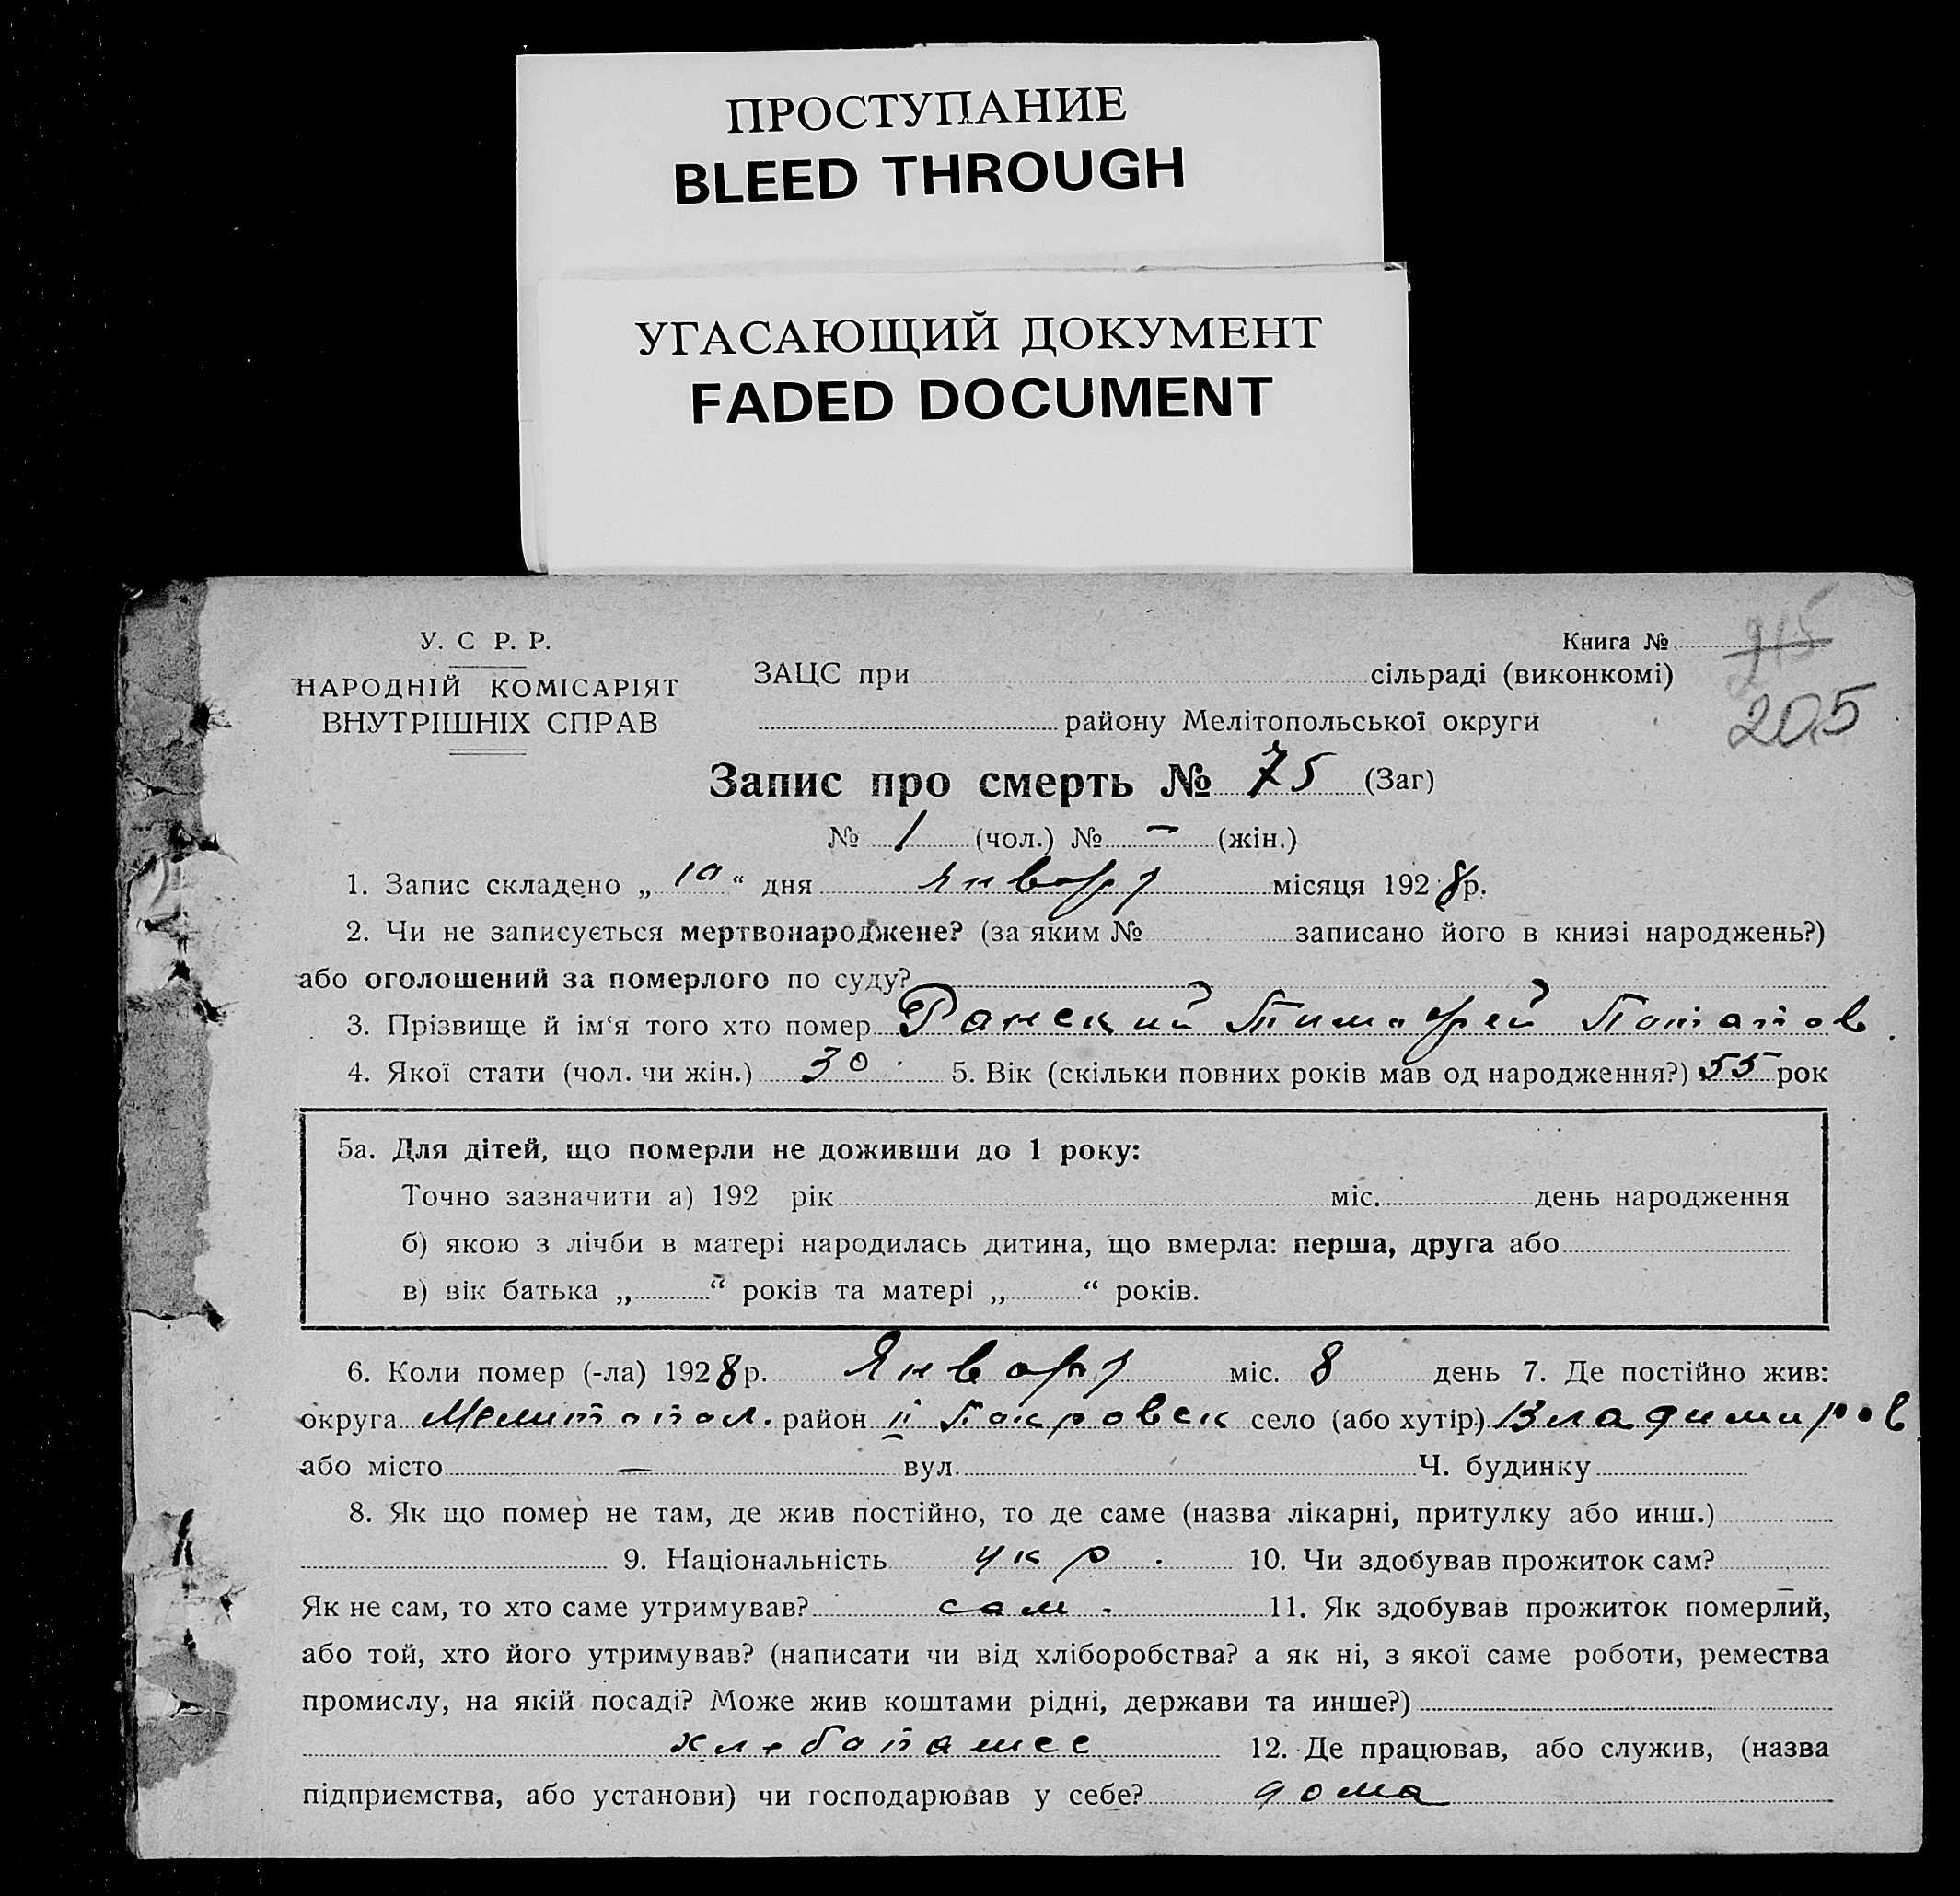 ПРОСТУПАНИЕ
BLEED THROUGH
УГАСАЮЩИЙ ДОКУМЕНТ
FADED DOCUMENT
У. С Р. Р.
НАРОДНІЙ КОМІСАРІЯТ
ВНУТРІШНІХ СПРАВ
Книга №
205
ЗАЦС при сільраді (виконкомі)
району Мелітопольської округи
Запис про смерть № 75 (Заг)
№ 1 (чол.) № — (жін.)
1. Запис складено „10“ дня Январ місяця 1928р.
2. Чи не записується мертвонароджене? (за яким № записано його в книзі народжень?)
або оголошений за померлого по суду?
3. Прізвище й ім‘я того хто помер Ранский Тимофей
4. Якої стати (чол. чи жін.) 5. Вік (скільки повних років мав од народження?) 55 рок
5а. Для дітей, що померли не доживши до 1 року:
Точно зазначити а) 192 рік міс. день народження
б) якою з лічби в матері народилась дитина, що вмерла: перша, друга або
в) вік батька „ “ років та матері „ “ років.
6. Коли помер (-ла) 1928р. Январ міс. 8 день 7. Де постійно жив:
округа Мелитопол. район II Покровск село (або хутір) Владимиров
або місто — вул. Ч. будинку
8. Як що помер не там, де жив постійно, то де саме (назва лікарні, притулку або инш.)
9. Національність укр. 10. Чи здобував прожиток сам?
Як не сам, то хто саме утримував? сам. 11. Як здобував прожиток померлий,
або той, хто його утримував? (написати чи від хліборобства? а як ні, з якої саме роботи, ремества
промислу, на якій посаді? Може жив коштами рідні, держави та инше?)
12. Де працював, або служив, (назва
підприємства, або установи) чи господарював у себе? дома